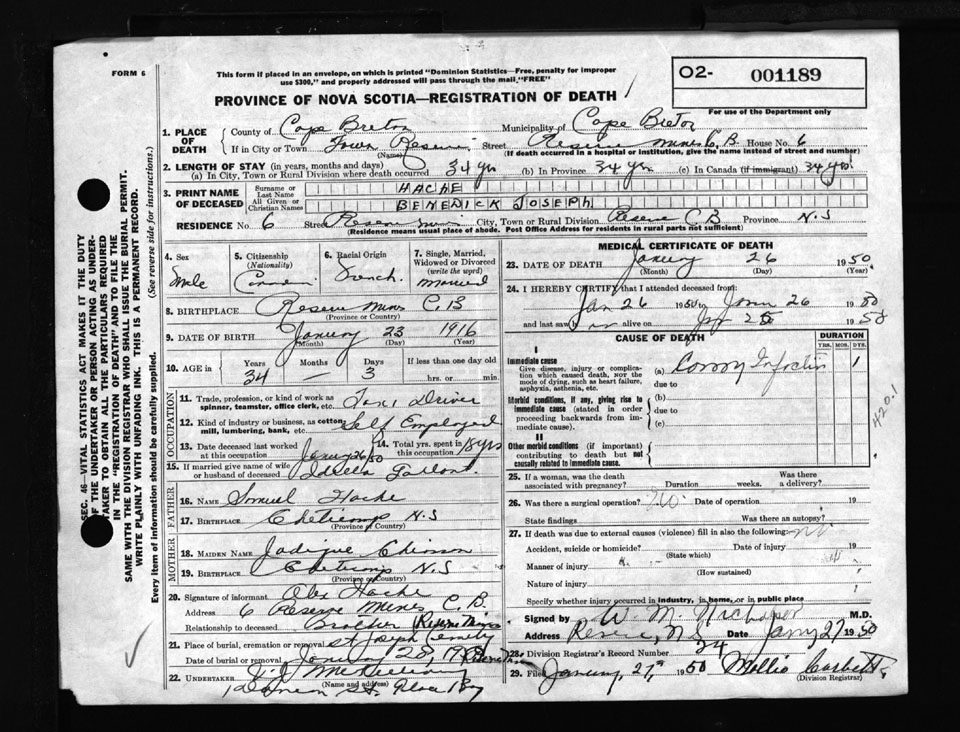 FORM 6
This form if placed in an envelope, on which is printed "Dominion Statistics—Free, penalty for improper
use $300," and properly addressed will pass through the mail "FREE"
O2- 001189
For use of the Department only
PROVINCE OF NOVA SCOTIA—REGISTRATION OF DEATH
1. PLACE OF DEATH
County of Cape Breton Municipality of Cape Breton
If in City or Town Reserve (Name) Street Reserve Mines C.B House No. 6
(If death occurred in a hospital or institution, give the name instead of street and number)
2. LENGTH OF STAY (in years, months and days)
(a) In City, Town or Rural Division where death occurred 34 yrs (b) In Province 34 yrs (c) In Canada (if immigrant) 34 yrs
3. PRINT NAME OF DECEASED
Surname or Last Name HACHE
All Given or Christian Names BENEDICK JOSEPH
RESIDENCE No. 6 Street Reserve Mines City, Town or Rural Division Reserve C B Province N.S
(Residence means usual place of abode. Post Office Address for residents in rural parts not sufficient)
4. Sex Male
5. Citizenship (Nationality) Canadian
6. Racial Origin French
7. Single, Married, Widowed or Divorced (write the word) Married
8. BIRTHPLACE Reserve Mines C.B
(Province or Country)
9. DATE OF BIRTH January 23 1916
(Month) (Day) (Year)
10. AGE in Years 34 Months — Days 3 If less than one day old hrs. or min.
OCCUPATION
11. Trade, profession or kind of work as spinner, teamster, office clerk, etc. Taxi Driver
12. Kind of industry or business, as cotton mill, lumbering, bank, etc. Self Employed
13. Date deceased last worked at this occupation 14. Total yrs. spent in this occupation 18 yrs
15. If married give name of wife or husband of deceased
FATHER
16. NAME Hache
17. BIRTHPLACE Cheticamp N.S
(Province or Country)
MOTHER
18. MAIDEN NAME
19. BIRTHPLACE Cheticamp N.S
(Province or Country)
20. Signature of informant Alex Hache
Address 6 Reserve Mines C.B.
Relationship to deceased Brother (Reserve Mines
21. Place of burial, cremation or removal St Joseph Cemetery
Date of burial or removal January 28,
22. UNDERTAKER
(Name and address)
St. Glace Bay
MEDICAL CERTIFICATE OF DEATH
23. DATE OF DEATH January 26 1950
(Month) (Day) (Year)
24. I HEREBY CERTIFY that I attended deceased from:
Jan 26 1950 to 26 19
and last saw h alive on 19
CAUSE OF DEATH
DURATION
YRS. MOS. DYS.
I
Immediate cause
Give disease, injury or complication which caused death, not the mode of dying, such as heart failure, asphyxia, asthenia, etc.
(a) 1
due to
Morbid conditions, if any, giving rise to immediate cause (stated in order proceeding backwards from immediate cause).
(b)
due to
(c)
II
Other morbid conditions (if important) contributing to death but not causally related to immediate cause.
420.1
25. If a woman, was the death associated with pregnancy? Duration weeks. Was there a delivery?
26. Was there a surgical operation? No Date of operation 19
State findings Was there an autopsy?
27. If death was due to external causes (violence) fill in also the following
Accident, suicide or homicide? Date of injury 19
(State which)
Manner of injury
(How sustained)
Nature of injury
Specify whether injury occurred in industry, in home, or in public place
Signed by W M M.D.
Address Reserve, N.S Date 27 1950
28. Division Registrar's Record Number 24
29. Filed January, 27, 1950 Mollie Corbett
(Division Registrar)
SEC. 46—VITAL STATISTICS ACT MAKES IT THE DUTY
OF THE UNDERTAKER OR PERSON ACTING AS UNDER-
TAKER TO OBTAIN ALL THE PARTICULARS REQUIRED
IN THE "REGISTRATION OF DEATH" AND TO FILE THE
SAME WITH THE DIVISION REGISTRAR WHO SHALL ISSUE THE BURIAL PERMIT.
WRITE PLAINLY WITH UNFADING INK. THIS IS A PERMANENT RECORD.
Every item of information should be carefully supplied. (See reverse side for instructions.)